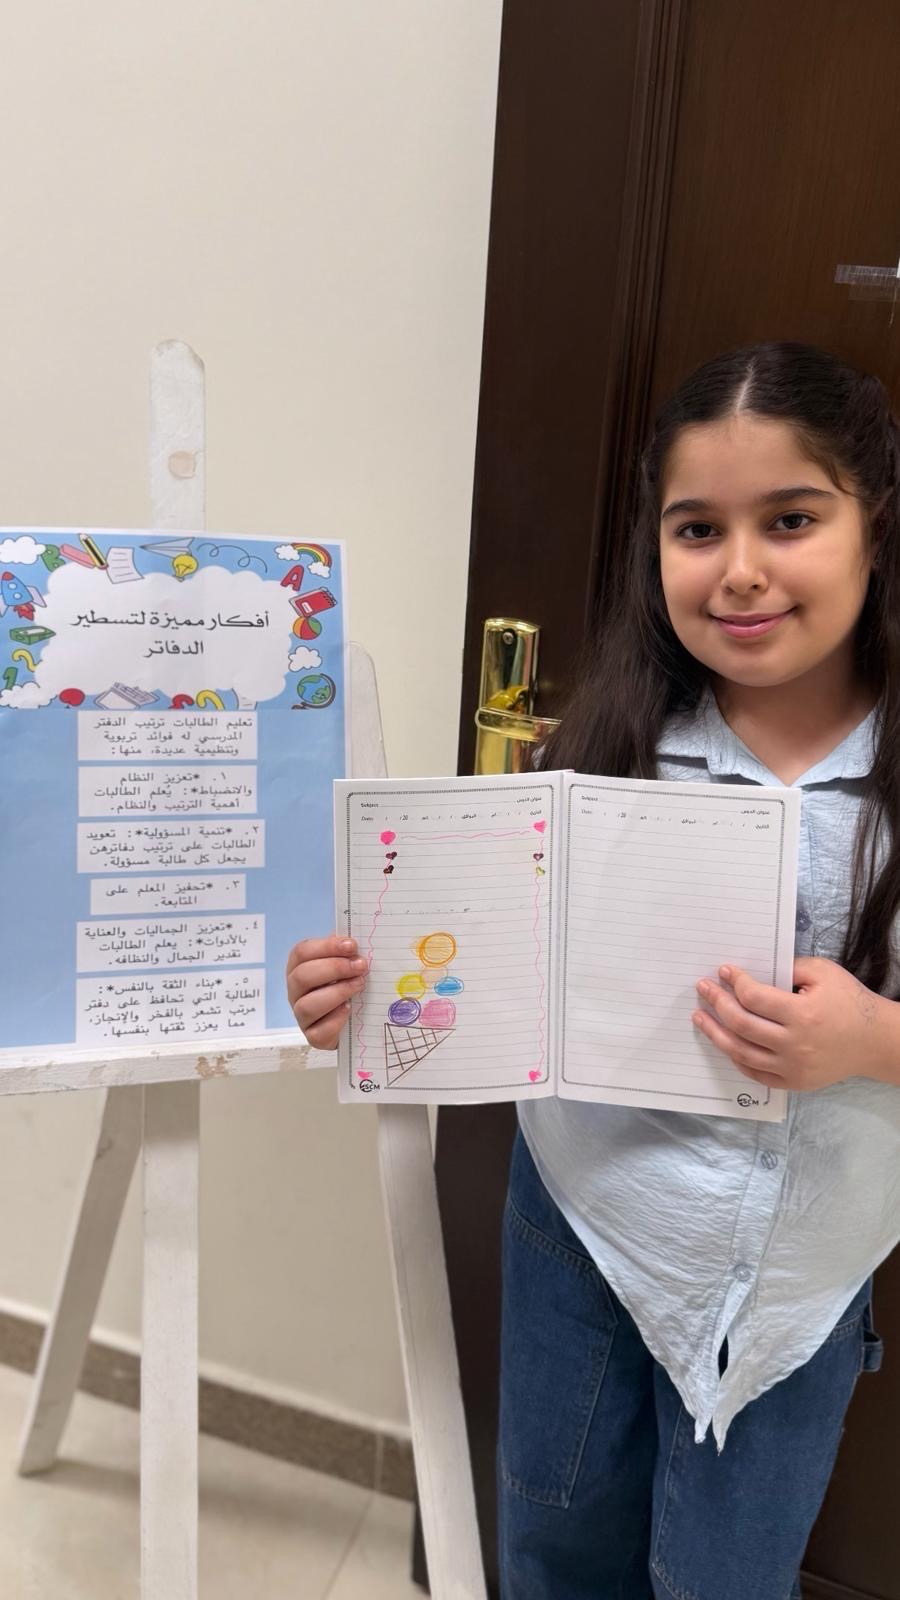 أفكار مميزة لتسطير
الدفاتر
تعليم الطالبات ترتيب الدفتر
المدرسي له فوائد تربوية
وتنظيمية عديدة، منها:
١. *تعزيز النظام
والانضباط*: يُعلم الطالبات
أهمية الترتيب والنظام.
٢. *تنمية المسؤولية*: تعويد
الطالبات على ترتيب دفاترهن
يجعل كل طالبة مسؤولة.
٣. *تحفيز المعلم على
المتابعة.
٤. *تعزيز الجماليات والعناية
بالأدوات*: يعلم الطالبات
تقدير الجمال والنظافه.
٥. *بناء الثقة بالنفس*:
الطالبة التي تحافظ على دفتر
مرتب تشعر بالفخر والإنجاز،
مما يعزز ثقتها بنفسها.
Subject عنوان الدرس
Date: / / 20 الموافق / / التاريخ
Subject عنوان الدرس
Date: / / 20 الموافق / / التاريخ